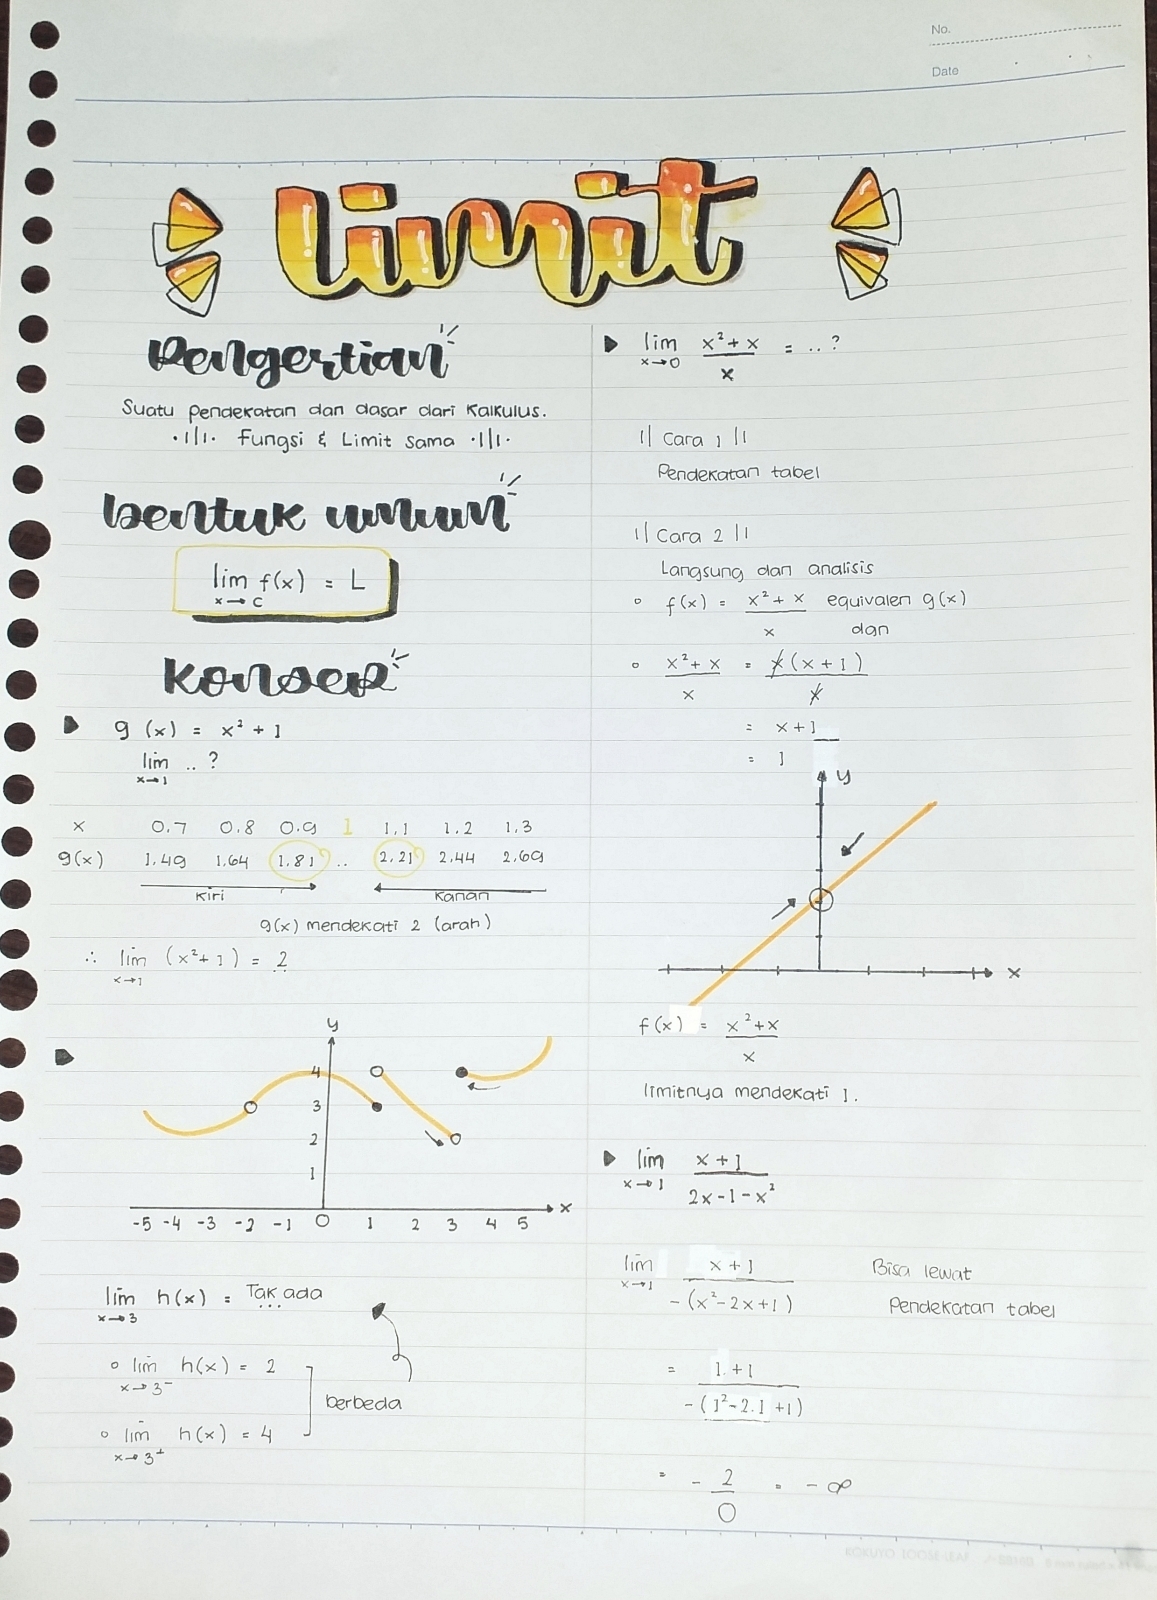 No.
Date
limit
Pengertian
Suatu pendekatan dan dasar dari Kalkulus.
Fungsi & Limit sama
bentuk umum
lim f(x) = L
x→c
Konsep
g (x) = x² + 1
lim .. ?
x→1
x 0.7 0.8 0.9 1 1.1 1.2 1.3
g(x) 1.49 1.64 1.81 .. 2.21 2.44 2.69
Kiri Kanan
g(x) mendekati 2 (arah)
∴ lim (x²+1) = 2
x→1
y
4
3
2
1
x
-5 -4 -3 -2 -1 0 1 2 3 4 5
lim h(x) = Tak ada
x→3
lim h(x) = 2
x→3⁻
berbeda
lim h(x) = 4
x→3⁺
lim x²+x = ..?
x→0 x
Cara 1
Pendekatan tabel
Cara 2
Langsung dan analisis
f(x) = x²+x equivalen g(x)
x dan
x²+x = x(x+1)
x x
= x+1
= 1
y
x
f(x) = x²+x
x
limitnya mendekati 1.
lim x+1
x→1 2x-1-x²
lim x+1 Bisa lewat
x→1 -(x²-2x+1) Pendekatan tabel
= 1.+1
-(1²-2.1+1)
= - 2 = -∞
0
KOKUYO LOOSE-LEAF